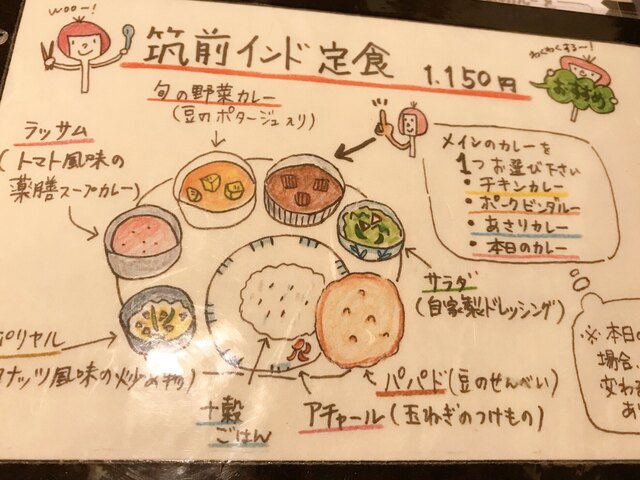 woo~!
筑前インド定食 1.150円
わくわくする~!
おすすめ
旬の野菜カレー
(豆のポタージュ入り)
ラッサム
(トマト風味の
薬膳スープカレー)
メインのカレーを
1つお選び下さい
・チキンカレー
・ポークビンダルー
・あさりカレー
・本日のカレー
サラダ
(自家製ドレッシング)
ポリヤル
ナッツ風味の炒め物)
十穀
ごはん
アチャール(玉ねぎのつけもの)
パパド(豆のせんべい)
※本日の
場合、
交わ
あ